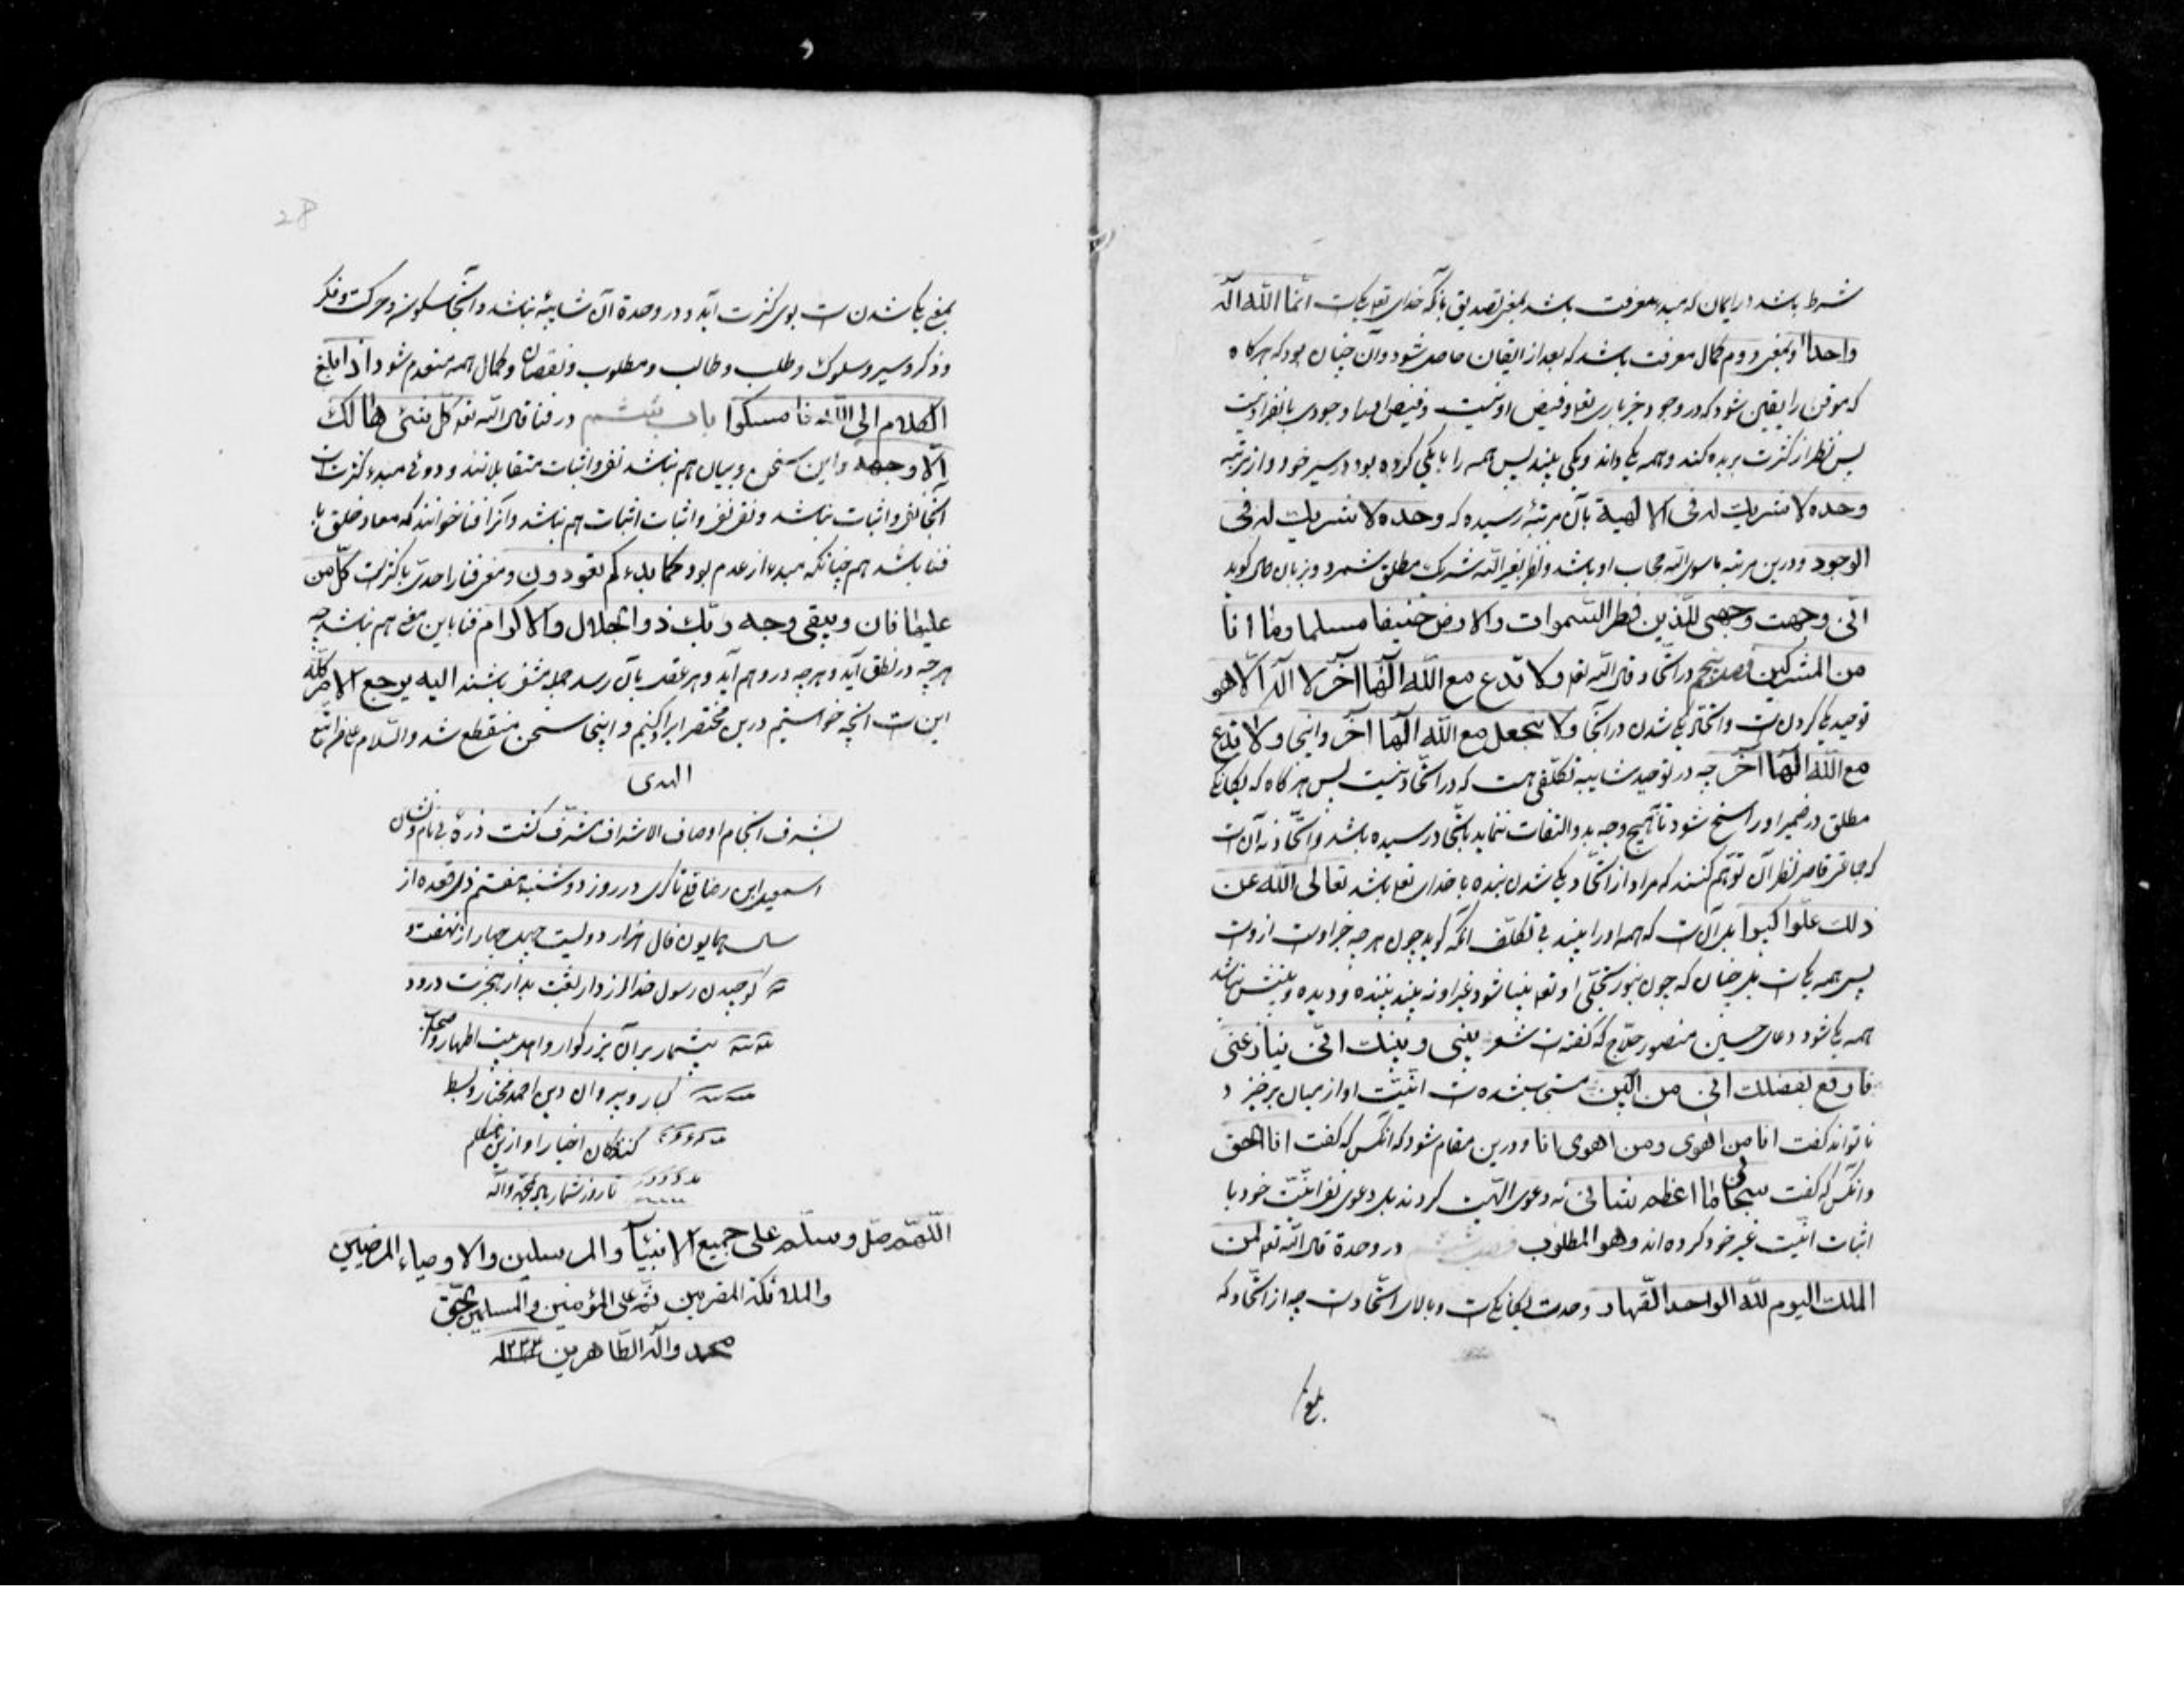 شرط باشد در ایمان که مبدء معرفت باشد بمعنی تصدیق بآنکه خدای تعالی یکیست انما الله اله
واحد و بمعنی دوم کمال معرفت باشد که بعد از ایقان حاصل شود و آن چنان بود که هرگاه
که موقن را یقین شود که در وجود جز باری تعالی و فیض او نیست و فیض او را وجودی بانفراد نیست
پس نظر از کثرت بریده کند و همه یکی داند و یکی بیند پس همه را با یکی کرده بود در سیر خود و از مرتبه
وحده لا شریک له فی الالهیة بآن مرتبه رسیده که وحده لا شریک له فی
الوجود و درین مرتبه ماسوی الله حجاب او باشد و نظر بغیر الله شرک مطلق شمرد و بزبان حال گوید
انی وجهت وجهی للذین فطر السموات والارض حنیفا مسلما وما انا
من المشرکین فصل پنجم در اتحاد قال الله تعالی ولا تدع مع الله الها آخر لا اله الا هو
توحید یکی کردن است و اتحاد یکی شدن در آنجا ولا تجعل مع الله الها آخر و اینجا ولا تدع
مع الله الها آخر چه در توحید شایبه تکلفی هست که در اتحاد نیست پس هرگاه که یگانگی
مطلق در ضمیر او راسخ شود تا بهیچ وجه بدو التفات ننماید باتحاد رسیده باشد و اتحاد نه آنست
که جماعتی قاصر نظران توهم کنند که مراد از اتحاد یکی شدن بنده با خدای تعالی باشد تعالی الله عن
ذلک علوا کبیرا بل آنست که همه او را بینند بی تکلف آنکه گوید چون هر چه جز اوست از وست
پس همه یکیست بل چنان که چون بنور تجلی او تعالی بینا شود غیر او نه بیند بیننده و دیده و بینش نباشد
همه یکی شود دعای حسین منصور حلاج که گفتست شعر بینی و بینک انی ینازعنی
فارفع بفضلک انی من البین مستجاب شده است انیت او از میان برخیزد
تا تواند گفت انا من اهوی ومن اهوی انا و درین مقام شود که آنکس که گفت انا الحق
و آنکس که گفت سبحانی ما اعظم شانی نه دعوی الهیت کردند بل دعوی نفی انیت خود با
اثبات انیت غیر خود کرده اند وهو المطلوب فصل ششم در وحدة قال الله تعالی لمن
الملک الیوم لله الواحد القهار وحدت یگانگیست و بالای اتحادست چه از اتحاد که
بلغ
28
بمعنی یکی شدن است بوی کثرت آید و در وحدة آن شایبه نباشد و آنجا سکون و حرکت و فکر
و ذکر و سیر و سلوک و طلب و طالب و مطلوب و نقصان و کمال همه منعدم شود اذا بلغ
الکلام الی الله فامسکوا باب ششم در فنا قال الله تعالی کل شئ هالک
الا وجهه و این سخن و بیان هم نباشد نفی و اثبات متقابلانند و دوئی مبدء کثرتست
آنجا نفی و اثبات نباشد و نفی نفی و اثبات اثبات هم نباشد و آنرا فنا خوانند که معاد خلق با
فنا باشد همچنانکه مبدء از عدم بود کما بدءکم تعودون و معنی فنا را حدی با کثرتست کل من
علیها فان ویبقی وجه ربک ذو الجلال والاکرام فنا باین معنی هم نباشد چه
هر چه در نطق آید و هر چه در وهم آید و هر عقل بآن رسد جمله منفی باشند الیه یرجع الامر کله
این است آنچه خواستیم درین مختصر ایراد کنیم و اینجا سخن منقطع شد والسلام علی من اتبع
الهدی
بشرف انجام اوصاف الاشراف مشرف گشت ذرهٔ بی نام و نشان
اسمعیل ابن رضا قلی در روز دوشنبه هفتم ذی قعده از
سال همایون فال هزار دویست چهل چهار از نهضت و
کوچیدن رسول خدا از دار لغبت بدار هجرت درود
بیشمار بر آن بزرگوار و اهل بیت اطهار و اصحاب
کبار و پیروان دین احمد مختار و بسط
کنندگان اخبار او از من
تا روز شمار بالنبی و آله
اللهم صل وسلم علی جمیع الانبیآء والمرسلین والاوصیاء المرضیین
والملائکة المقربین ثم علی المؤمنین والمسلمین بحق
محمد وآله الطاهرین